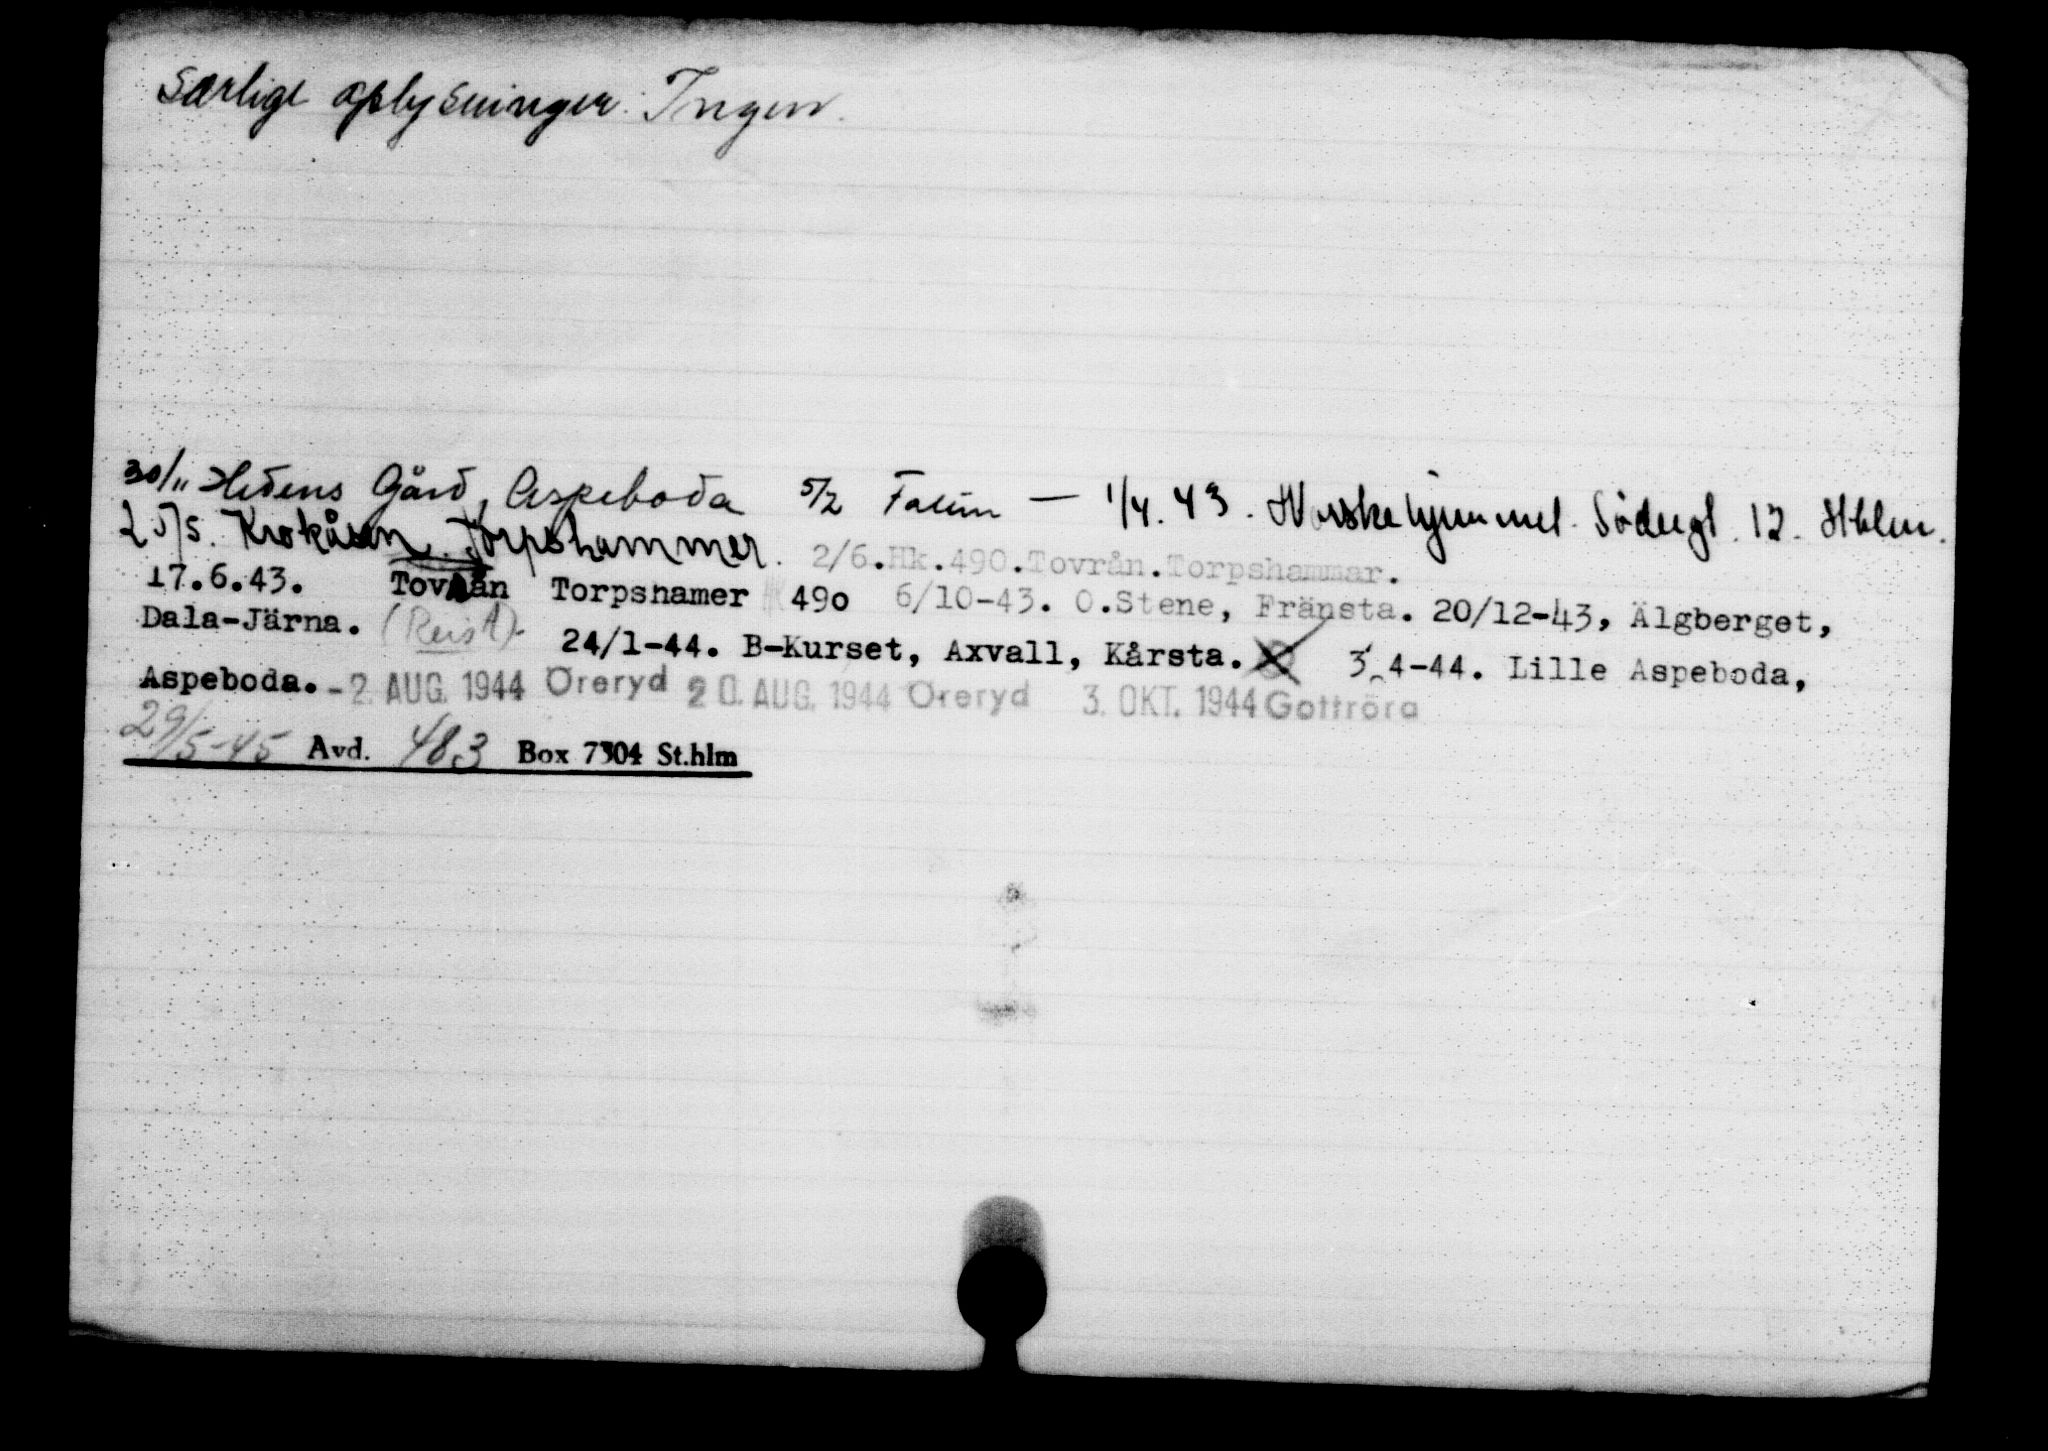 Særlige oplysninger: Ingen.
30/11 Hedens Gård, Aspeboda 5/2 Falun — 1/4.43. Norske hjemmet. Söderg. 12. Sthlm.
25/5. Krokåsen. Torpshammer. 2/6.Hk.490.Tovrån.Torpshammar.
17.6.43. Tovrån Torpshamer 490 6/10-43. O.Stene, Fränsta. 20/12-43, Älgberget,
Dala-Järna. (Reist). 24/1-44. B-Kurset, Axvall, Kårsta. 3.4-44. Lille Aspeboda,
Aspeboda. -2. AUG. 1944 Öreryd 20. AUG. 1944 Öreryd 3. OKT. 1944 Gottröra
29/5-45 Avd. 483 Box 7304 St.hlm